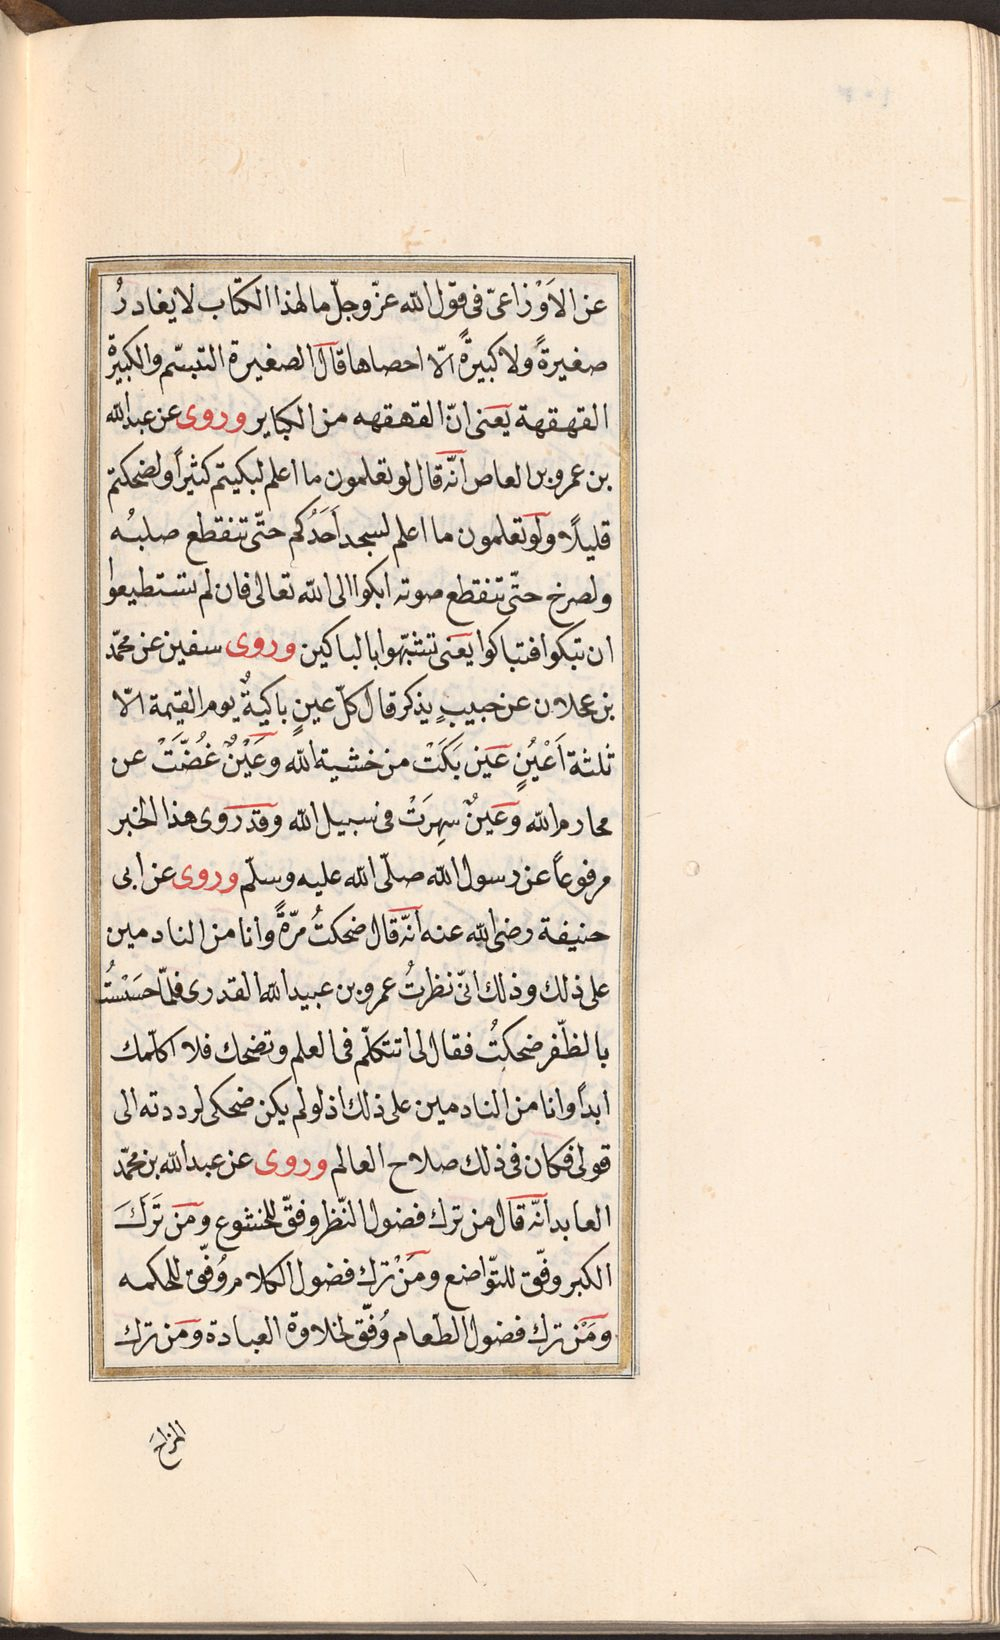 عن الاَوْزاعىّ فى قول الله عزّ وجلّ مالهذا الكتاب لا يغادرُ
صغيرةً ولا كبيرةً الّا احصاها قال الصغيرة التبسّم والكبيرة
القهقهة يعنى انّ القهقهه من الكباير وروى عن عبدالله
بن عمرو بن العاص انّه قال لو تعلمون ما اعلم لبكيتم كثيراً ولضحكتم
قليلاً ولو تعلمون ما اعلم لسجد اَحَدُكم حتّى تنقطع صلبُه
ولصرخ حتّى تنقطع صوته ابكوا الى الله تعالى فان لم تستطيعوا
ان تبكوا فتباكوا يعنى تشبّهوا بالباكين وروى سفين عن محمّد
بن عجلان عن حبيبٍ يذكر قال كلّ عينٍ باكيةٌ يوم القيمة الّا
ثلثة اَعْيُنٍ عين بَكَتْ من خشية الله وعَيْنٌ غُضّتْ عن
محارم الله وعينٌ سهِرَتْ فى سبيل الله وقد روى هذا الخبر
مرفوعاً عن رسول الله صلّى الله عليه وسلّم وروى عن ابى
حنيفة رضى الله عنه انّه قال ضحكتُ مرّةً وانا من النادمين
على ذلك وذلك انّى نظرتُ عمرو بن عبيد الله القدرى فلمّا حسَسْتُ
بالظّفر ضحكتُ فقال لى اتتكلّم فى العلم وتضحك فلا اكلّمك
ابداً وانا من النادمين على ذلك اذ لو لم يكن ضحكى لرددته الى
قولى فكان فى ذلك صلاح العالم وروى عن عبدالله بن محمّد
العابد انّه قال من ترك فضول النّظر وفقّ للخشوع ومَن تَرَكَ
الكبر وفّق للتّواضع ومَنْ ترك فضول الكلام وُفّق للحكمه
ومَنْ ترك فضول الطّعام وُفّق لحلاوة العبادة ومَن ترك
المزاحَ